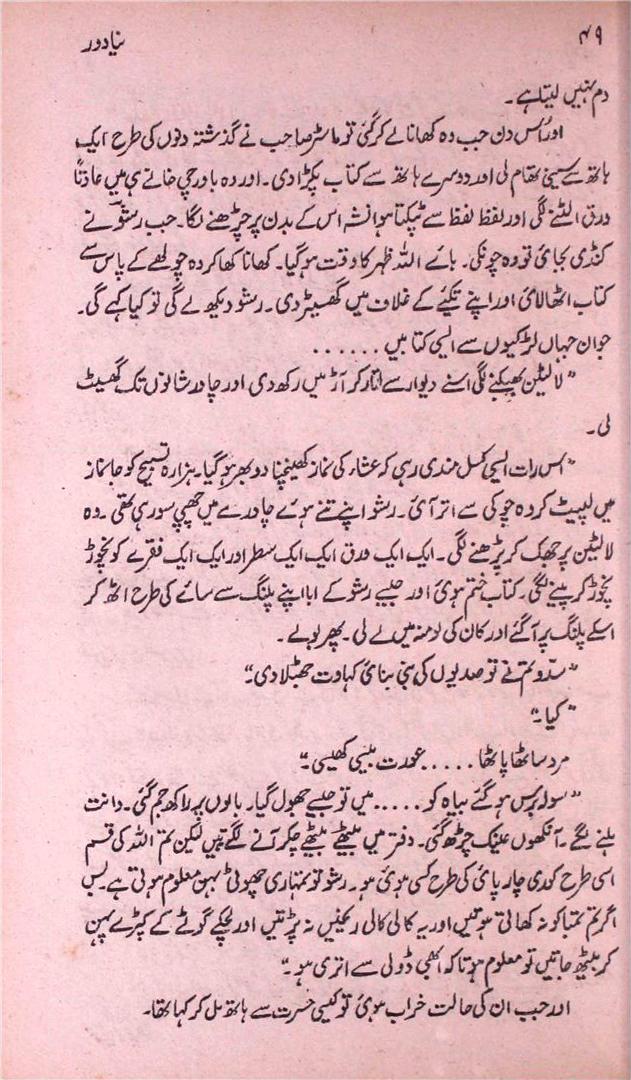 ۴۹
نیا دور
دم نہیں لیتا ہے۔
اور اُس دن جب وہ کھانا لے کر گئی تو ماسٹر صاحب نے گذشتہ دنوں کی طرح ایک
ہاتھ سے سینی تھام لی اور دوسرے ہاتھ سے کتاب پکڑا دی۔ اور وہ باورچی خانے ہی میں عادتاً
ورق الٹنے لگی اور لفظ لفظ سے ٹپکتا ہوا نشہ اس کے بدن پر چڑھنے لگا۔ جب رشو نے
کنڈی بجائی تو وہ چونکی۔ ہائے اللہ ظہر کا وقت ہو گیا۔ کھانا کھا کر وہ چولھے کے پاس سے
کتاب اٹھا لائی اور اپنے تکئے کے غلاف میں گھسیڑ دی۔ رشو دیکھ لے گی تو کیا کہے گی۔
جوان جہاں لڑکیوں سے ایسی کتابیں ......
"لالٹین بھبکنے لگی اسنے دیوار سے اتار کر آڑ میں رکھ دی اور چادر شانوں تک گھسیٹ
لی۔
"اس رات ایسی کسل مندی رہی کہ عشاء کی نماز کھینچنا دوبھر ہو گیا۔ ہزارہ تسبیح کو جانماز
میں لپیٹ کر وہ چوکی سے اتر آئی۔ رشو اپنے تنے ہوئے چادرے میں چھپی سو رہی تھی۔ وہ
لالٹین پر جھک کر پڑھنے لگی۔ ایک ایک ورق ایک ایک سطر اور ایک ایک فقرے کو نچوڑ
نچوڑ کر پینے لگی۔ کتاب ختم ہوئی اور جیسے رشو کے ابا اپنے پلنگ سے سائے کی طرح اٹھ کر
اسکے پلنگ پر آ گئے اور کان کی لو منہ میں لے لی۔ پھر بولے۔
"سدّو تم نے تو صدیوں کی بنی بنائی کہاوت جھٹلا دی۔"
"کیا۔"
مرد ساٹھا پاٹھا ..... عورت بیسی کھیسی۔"
"سولہ برس ہو گئے بیاہ کو ..... میں تو جیسے جھول گیا۔ بالوں پر راکھ جم گئی۔ دانت
ہلنے لگے۔ آنکھوں عینک چڑھ گئی۔ دفتر میں بیٹھے بیٹھے چکر آنے لگتے ہیں لیکن تم اللہ کی قسم
اسی طرح کوری چارپائی کی طرح کسی ہوئی ہو۔ رشو تو تمہاری چھوٹی بہن معلوم ہوتی ہے۔ بس
اگر تم تمباکو نہ کھاتی ہوتیں اور یہ کالی کالی ریخیں نہ پڑتیں اور لچکے گوٹے کے کپڑے پہن
کر بیٹھ جاتیں تو معلوم ہوتا کہ ابھی ڈولی سے اتری ہو۔"
اور جب ان کی حالت خراب ہوئی تو کیسی حسرت سے ہاتھ مل کر کہا تھا۔